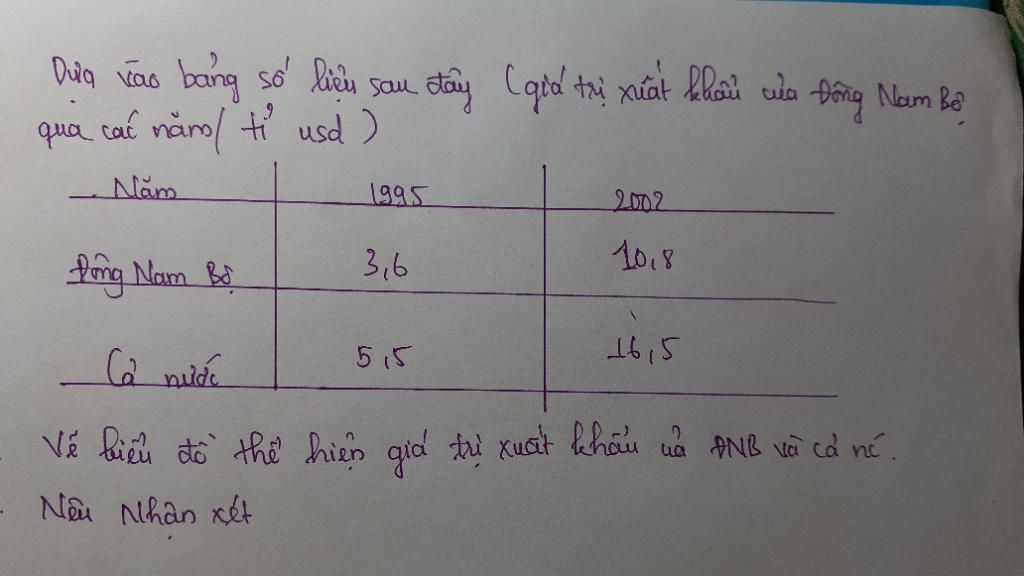 Dựa vào bảng số liệu sau đây (giá trị xuất khẩu của Đông Nam Bộ
qua các năm ( tỉ usd )
Năm 1995 2002
Đông Nam Bộ 3,6 10,8
Cả nước 5,5 16,5
Vẽ biểu đồ thể hiện giá trị xuất khẩu uả ĐNB và cả nć.
Nêu Nhận xét